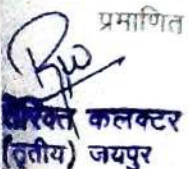 प्रमाणित
कलक्टर
(तृतीय) जयपुर